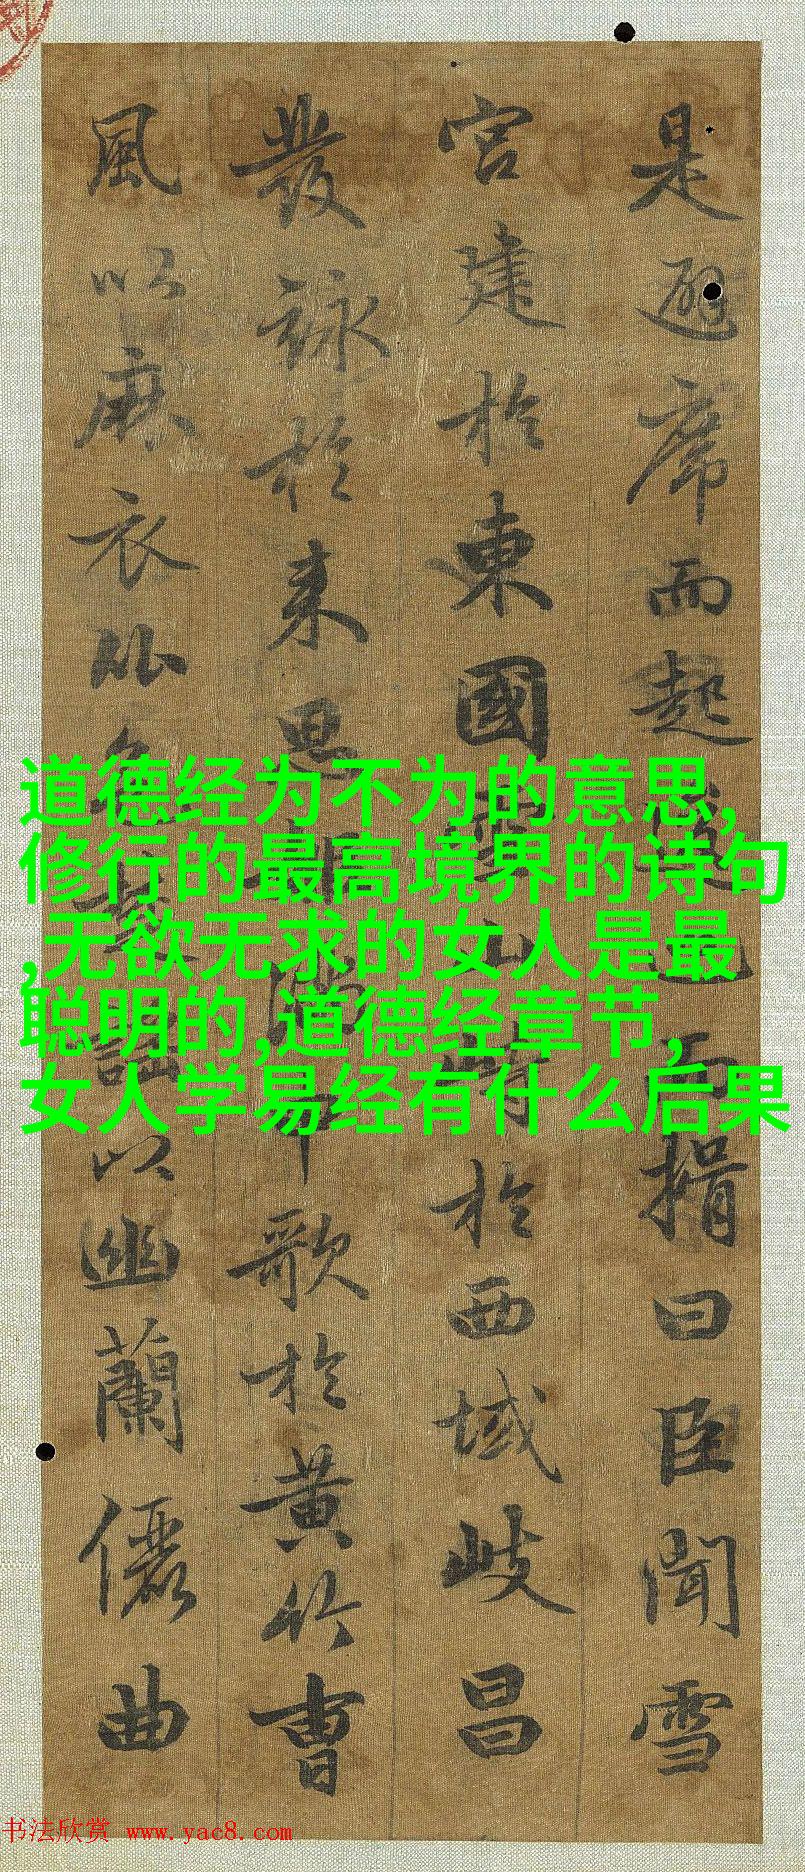 是避席而起而揖曰臣聞雪
宮建於東國山於西域岐昌
發詠於来思滿歌於黄竹曹
風以麻衣比以幽蘭儷曲
道德经为不为的意思,
修行的最高境界的诗句
,无欲无求的女人是最
聪明的,道德经章节,
女人学易经有什么后果
书法欣赏 www.yac8.com